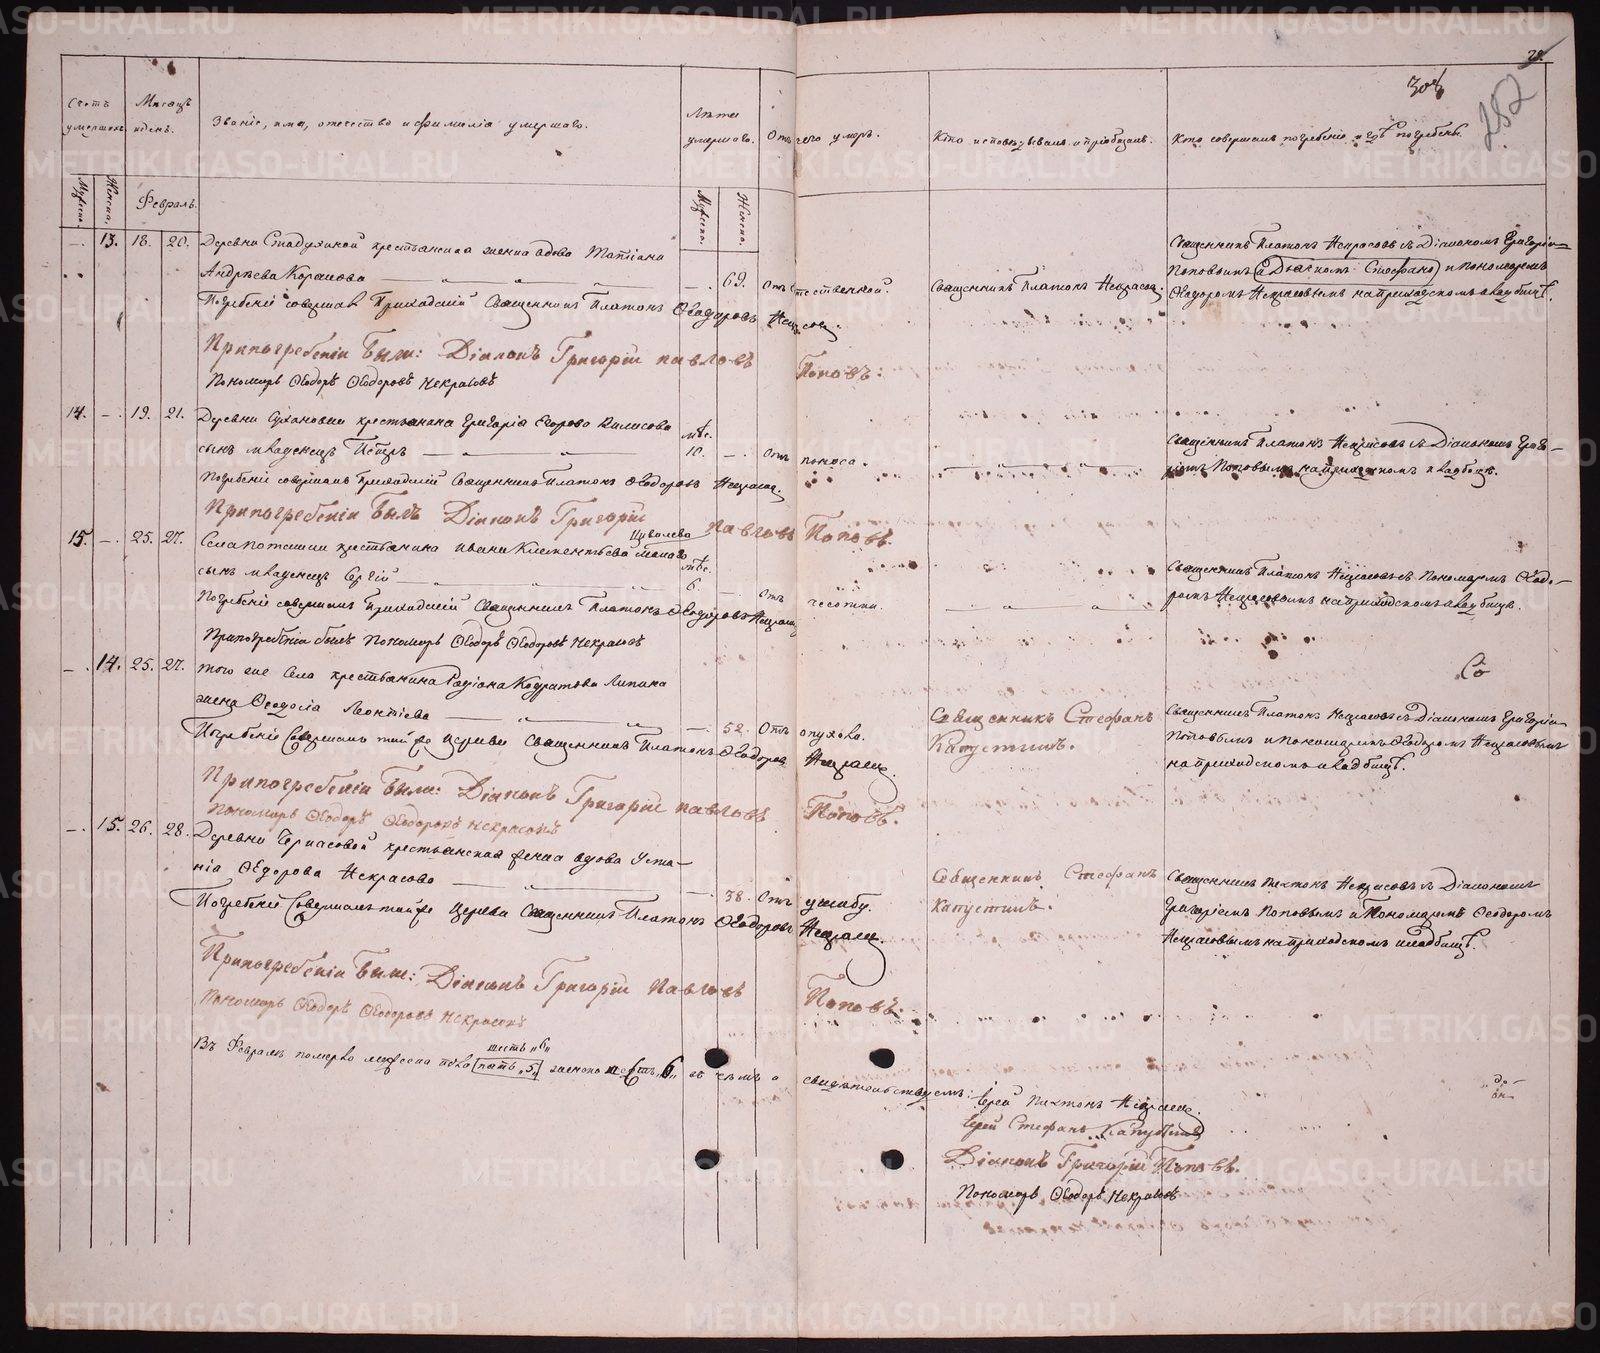 METRIKI.GASO-URAL.RU
29.
308
282
Счетъ умершихъ.
Мужеска.
Женска.
Мѣсяцъ и день.
Февраль.
Званіе, имя, отечество и фамилія умершаго.
Лѣта умершаго.
Мужеска.
Женска.
Отъ чего умеръ.
Кто исповѣдывалъ и пріобщалъ.
Кто совершалъ погребеніе и гдѣ погребены.
— 13. 18. 20. Деревни крестьянская женка вдова Татіана
Андрѣева — 69. Отъ естественной. Священникъ Платонъ Некрасовъ.
Священникъ Платонъ Некрасовъ съ Діакономъ Григоріемъ
Поповымъ и Дьячкомъ Стефано и пономаремъ
Ѳеодоромъ Некрасовымъ на приходскомъ кладбищѣ.
Погребеніе совершалъ Приходскій Священникъ Платонъ Ѳеодоровъ Некрасовъ
При погребеніи были: Діаконъ Григорій Павловъ Поповъ:
Пономарь Ѳеодоръ Ѳеодоровъ Некрасовъ
14. — 19. 21. Деревни крестьянина Григорія Егорова
сынъ младенецъ Петръ — мѣс. 10. — Отъ поноса.
Священникъ Платонъ Некрасовъ съ Діакономъ Григо-
ріемъ Поповымъ на приходскомъ кладбищѣ.
Погребеніе совершалъ Приходскій Священникъ Платонъ Ѳеодоровъ Некрасовъ
При погребеніи былъ Діаконъ Григорій Павловъ Поповъ.
15. — 25. 27. Села крестьянина Ивана Климентьева
сынъ младенецъ Сергій — мѣс. 6. — Отъ чесотки.
Священникъ Платонъ Некрасовъ съ Пономаремъ Ѳеодо-
ромъ Некрасовымъ на приходскомъ кладбищѣ.
Погребеніе совершалъ Приходскій Священникъ Платонъ Ѳеодоровъ Некрасовъ
При погребеніи былъ Пономарь Ѳеодоръ Ѳеодоровъ Некрасовъ
— 14. 25. 27. того же Села крестьянина Родіона Кодратова Липина
жена Ѳеодосія Леонтіева — 52. Отъ опухова.
Священникъ Стефанъ
Капустинъ.
Священникъ Платонъ Некрасовъ съ Діакономъ Григоріемъ
Поповымъ и пономаремъ Ѳеодоромъ Некрасовымъ
на приходскомъ кладбищѣ.
Погребеніе Совершалъ той же Церкви Священникъ Платонъ Ѳеодоровъ Некрасовъ.
При погребеніи были: Діаконъ Григорій Павловъ Поповъ.
Пономарь Ѳеодоръ Ѳеодоровъ Некрасовъ
— 15. 26. 28. Деревни крестьянская женка вдова Усти-
нія Ѳедорова Некрасова — 38. Отъ ушибу.
Священникъ Стефанъ
Капустинъ.
Священникъ Платонъ Некрасовъ съ Діакономъ
Григоріемъ Поповымъ и Пономаремъ Ѳеодоромъ
Некрасовымъ на приходскомъ кладбищѣ.
Погребеніе Совершалъ той же Церкви Священникъ Платонъ Ѳеодоровъ Некрасовъ.
При погребеніи были: Діаконъ Григорій Павловъ Поповъ.
Пономарь Ѳеодоръ Ѳеодоровъ Некрасовъ
шесть „6„
Въ Февралѣ померло мужеска пола пять „5„ женска шесть „6„ въ чемъ и свидѣтельствуемъ:
Іерей Платонъ Некрасовъ.
Іерей Стефанъ Капустинъ
Діаконъ Григорій Поповъ.
Пономарь Ѳеодоръ Некрасовъ